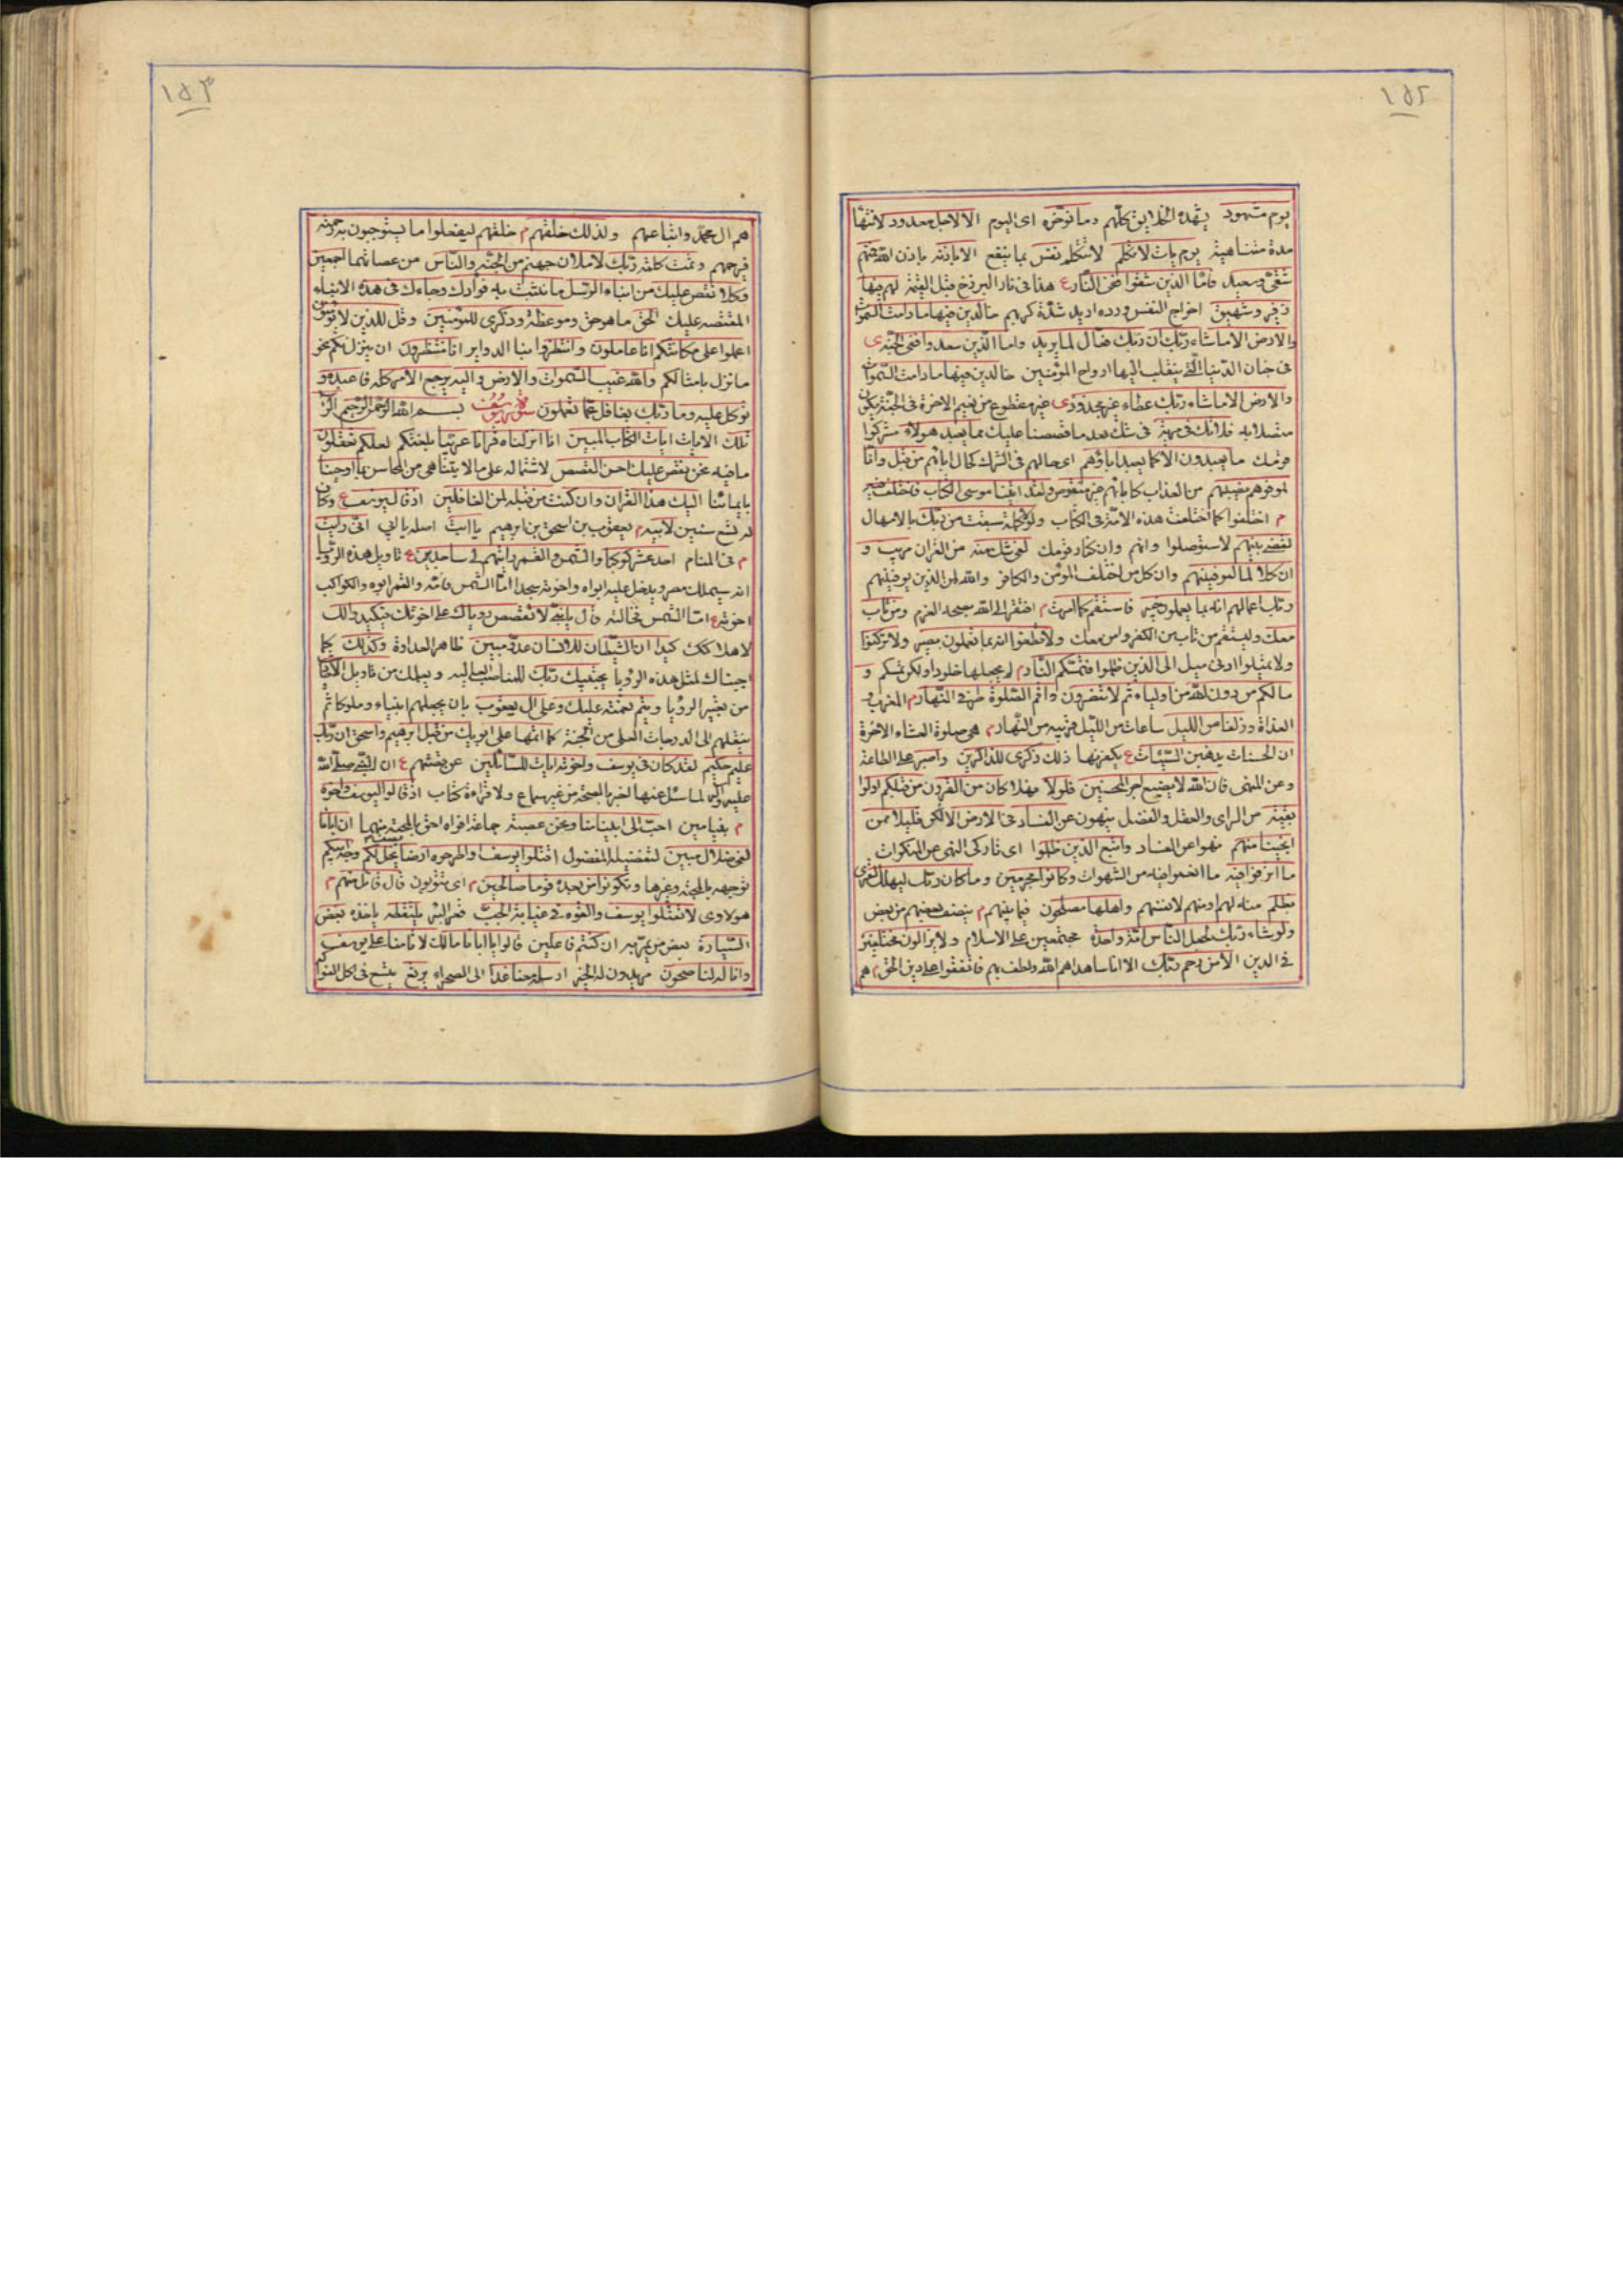 ١٥٢
يوم مشهود يشهده الخلايق كلهم وما نؤخره اى اليوم الا لاجل معدود لانتهاء
مدة متناهية يوم يات لا تكلم لا تتكلم نفس بما ينفع الا باذنه باذن الله فمنهم
شقى وسعيد فاما الذين شقوا ففى النار ع هذا فى نار البرزخ قبل القيمة لهم فيها
زفير وشهيق اخراج النفس ورده اريد شدة كربهم خالدين فيها ما دامت السموات
والارض الا ما شاء ربك ان ربك فعال لما يريد واما الذين سعدوا ففى الجنة ى
فى جنان الدنيا التى ينقلب اليها ارواح المؤمنين خالدين فيها ما دامت السموات
والارض الا ما شاء ربك عطاء غير مجذوذ ى غير مقطوع من نعيم الاخرة فى الجنة يكون
متصلا به فلا تك فى مرية فى شك بعد ما قصصنا عليك مما يعبد هولاء مشركوا
قومك ما يعبدون الا كما يعبد اباؤهم اى حالهم فى الشرك كحال ابائهم من قبل وانا
لموفوهم نصيبهم من العذاب كابائهم غير منقوص ولقد اتينا موسى الكتاب فاختلف فيه
م اختلفوا كما اختلفت هذه الامة فى الكتاب ولولا كلمة سبقت من ربك بالامهال
لقضى بينهم لاستوصلوا وانهم وان كفار قومك لفى شك منه من القران مريب و
ان كلا لما ليوفينهم وان كل من اختلف المؤمن والكافر والله لمن الذين يوفينهم
ربك اعمالهم انه بما يعملون خبير فاستقم كما امرت م افتقر الى الله بصحة العزم ومن تاب
معك وليستقم من تاب من الكفر وامن معك ولا تطغوا انه بما تعملون بصير ولا تركنوا
ولا تميلوا ادنى ميل الى الذين ظلموا فتمسكم النار م لم يجعلها خلودا ولكن تمسكم و
ما لكم من دون الله من اولياء ثم لا تنصرون واقم الصلوة طرفى النهار م المغرب و
الغداة وزلفا من الليل ساعات من الليل قريبة من النهار م هى صلوة العشاء الاخرة
ان الحسنات يذهبن السيئات ع يكفرنها ذلك ذكرى للذاكرين واصبر على الطاعة
وعن المنهى فان الله لا يضيع اجر المحسنين فلولا فهلا كان من القرون من قبلكم اولوا
بقية من الراى والعقل والفضل ينهون عن الفساد فى الارض الا لكن قليلا ممن
انجينا منهم نهوا عن الفساد واتبع الذين ظلموا اى تاركى النهى عن المنكرات
ما اترفوا فيه ما انعموا فيه من الشهوات وكانوا مجرمين وما كان ربك ليهلك القرى
بظلم منه لهم او منهم لانفسهم واهلها مصلحون فيما بينهم م ينصف بعضهم من بعض
ولو شاء ربك لجعل الناس امة واحدة مجتمعين على الاسلام ولا يزالون مختلفين
فى الدين الا من رحم ربك الا اناسا هداهم الله ولطف بهم فاتفقوا على دين الحق م هم
١٥٣
هم ال محمد واتباعهم ولذلك خلقهم م خلقهم ليفعلوا ما يستوجبون به رحمته
فيرحمهم وتمت كلمة ربك لاملان جهنم من الجنة والناس من عصاتهما اجمعين
وكلا نقص عليك من انباء الرسل ما نثبت به فؤادك وجاءك فى هذه الانباء
المقتصه عليك الحق ما هو حق وموعظة وذكرى للمؤمنين وقل للذين لا يؤمنون
اعملوا على مكانتكم انا عاملون وانتظروا بنا الدواير انا منتظرون ان ينزل بكم نحو
ما نزل بامثالكم ولله غيب السموات والارض واليه يرجع الامر كله فاعبده و
توكل عليه وما ربك بغافل عما تعملون سورة يوسف بسم الله الرحمن الرحيم الر
تلك الايات ايات الكتاب المبين انا انزلناه قرانا عربيا بلغتكم لعلكم تعقلون
ما فيه نحن نقص عليك احسن القصص لاشتماله على ما لا يتناهى من المحاسن بما اوحينا
بايحائنا اليك هذا القران وان كنت من قبله لمن الغافلين اذ قال يوسف ع وكان
له تسع سنين لابيه م يعقوب بن اسحق بن ابرهيم يا ابت اصله يا ابى انى رايت
م فى المنام احد عشر كوكبا والشمس والقمر رايتهم لى ساجدين ع تاويل هذه الرؤيا
انه سيملك مصر ويدخل عليه ابواه واخوته سجدا اما الشمس فامه والقمر ابوه والكواكب
اخوته ع اما الشمس فخالته قال يا بنى لا تقصص رؤياك على اخوتك فيكيدوا لك
لاهلاكك كيدا ان الشيطان للانسان عدو مبين ظاهر العداوة وكذلك كما
اجتباك لمثل هذه الرؤيا يجتبيك ربك للمناصب العالية ويعلمك من تاويل الاحاديث
من تعبير الرؤيا ويتم نعمته عليك وعلى ال يعقوب بان يجعلهم انبياء وملوكا ثم
ينقلهم الى الدرجات العلى من الجنة كما اتمها على ابويك من قبل ابرهيم واسحق ان ربك
عليم حكيم لقد كان فى يوسف واخوته ايات للسائلين عن قصتهم ع ان النبى صلى الله
عليه واله لما سئل عنها اخبر بالصحة من غير سماع ولا قراءة كتاب اذ قالوا ليوسف واخوه
م بنيامين احب الى ابينا منا ونحن عصبة جماعة اقوياء احق بالمحبة منهما ان ابانا
لفى ضلال مبين لتفضيله المفضول اقتلوا يوسف او اطرحوه ارضا يخل لكم وجه ابيكم
توجهه بالمحبة وغيرها وتكونوا من بعده قوما صالحين م اى تتوبون قال قائل منهم م
هو لاوى لا تقتلوا يوسف والقوه فى غيابة الجب قعر البئر يلتقطه ياخذه بعض
السيارة بعض من يمر به ان كنتم فاعلين قالوا يا ابانا ما لك لا تامنا على يوسف
وانا له لناصحون مريدون له الخير ارسله معنا غدا الى الصحراء يرتع يتسع فى اكل الفواكه